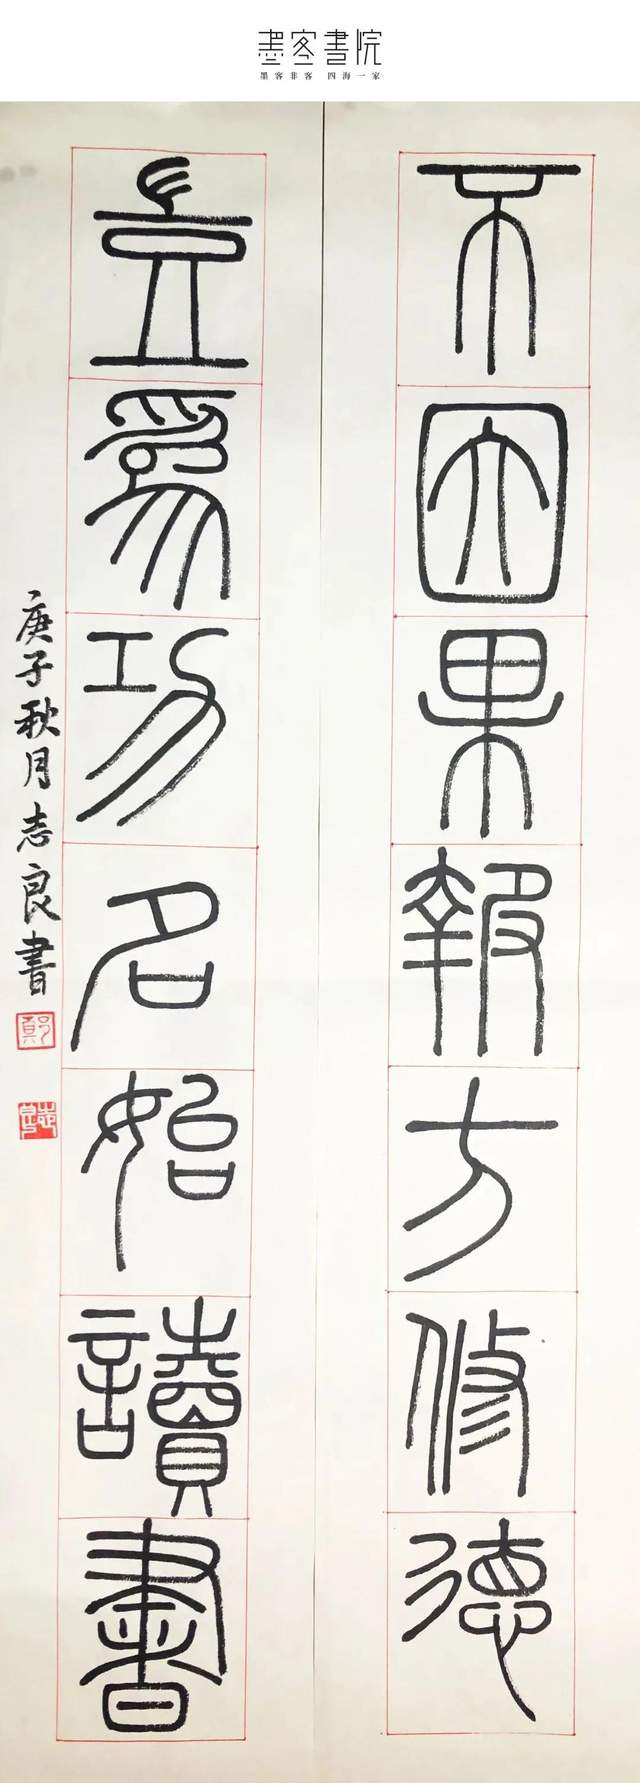 墨客書院
墨客非客 四海一家
不因果報方修德
豈為功名始讀書
庚子秋月志良書
鄭
志良